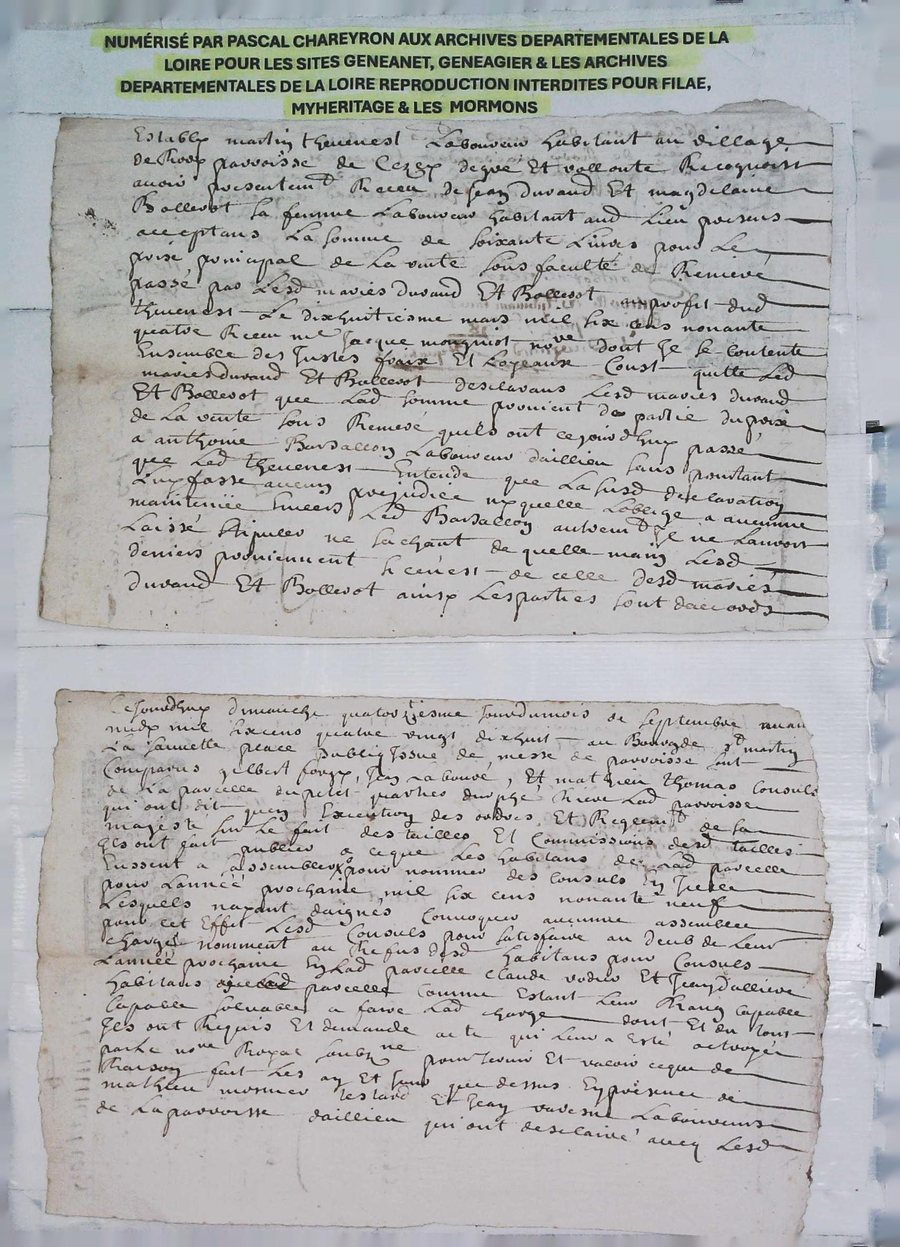 NUMÉRISÉ PAR PASCAL CHAREYRON AUX ARCHIVES DEPARTEMENTALES DE LA
LOIRE POUR LES SITES GENEANET, GENEAGIER & LES ARCHIVES
DEPARTEMENTALES DE LA LOIRE REPRODUCTION INTERDITES POUR FILAE,
MYHERITAGE & LES MORMONS
Establx martin thevenest Laboureur habitant au village
parroisse de degré Et vollonte Recognoist
avoir presentemt Receu de Jean durand Et magdelaine
Bollerot sa femme Laboureur habitant aud lieu
acceptans La somme de soixante Livres pour Le
prix principal de La vante sous faculté de Remeré
passé par Lesd mariés durand Et Bollerot au profit dud
thevenest Le dixhuitiesme mars mil six cens nonante
quatre Receu me Jacque nore dont Je se contente
Ensemble des Justes fraix Et Loyeaux Coust quitte Led
mariés durand Et Bollerot desclarans Lesd mariés durand
Et Bollerot que Lad somme provient de partie du prix
de La vante sous Remeré quils ont cejourdhuy passé
a anthoine Barsallon Laboureur daillieu sans pourtant
que Led thevenest Entende que La susd desclaration
Luy fasse aucun prejudice ny quelle Loblige a aucune
maintenüe Envers Led Barsallon autremt Je ne Lauroit
Laissé stipuler ne sachant de quelle main Lesd
deniers proviennent si cenest de celle desd mariés
durand Et Bollerot ainsy Lesparties sont daccords
Cejourdhuy dimanche quatorziesme Jour du mois de septembre avan
midy mil six cens quatre vingt dixhuit au Bourg de st martin
La sauvetté place publiq Issue de messe de parroisse sont
Comparus gilbert Jean Laboure, Et mathieu thomas Consuls
de La parcelle du petit quartier Riere Lad parroisse
qui ont dit quen Execution des ordres Et Reglemts de sa
majesté sur Le fait des tailles Et Commissions desd tailles
Ils ont fait publier a ceque Les habitans de Lad parcelle
Eussent a sassembler pour nommer des Consuls En Icelle
pour Lannée prochaine mil six cens nonante neuf
Lesquels nayant daignés Convoquer aucunne assemblee
pour cet Effet Lesd Consuls pour satisfaire au deub de Leur
charge nomment au Refus desd habitans pour Consuls
Lannée prochaine En Lad parcelle claude Et Jean dallieve
habitans parcelle comme Estant Leur Rang capable
Capable solvables a faire Lad charge dont Et du tout
Ils ont Requis Et demande acte qui Leur a Esté octroyer
par Le nore Royal soubzne pour servir Et valoir ceque de
Raison fait Les an Et Jour que dessus En presence de
mathieu mosnier testard Et Jean Laboureurs
de La parroisse daillieu qui ont desclairé avecq Lesd